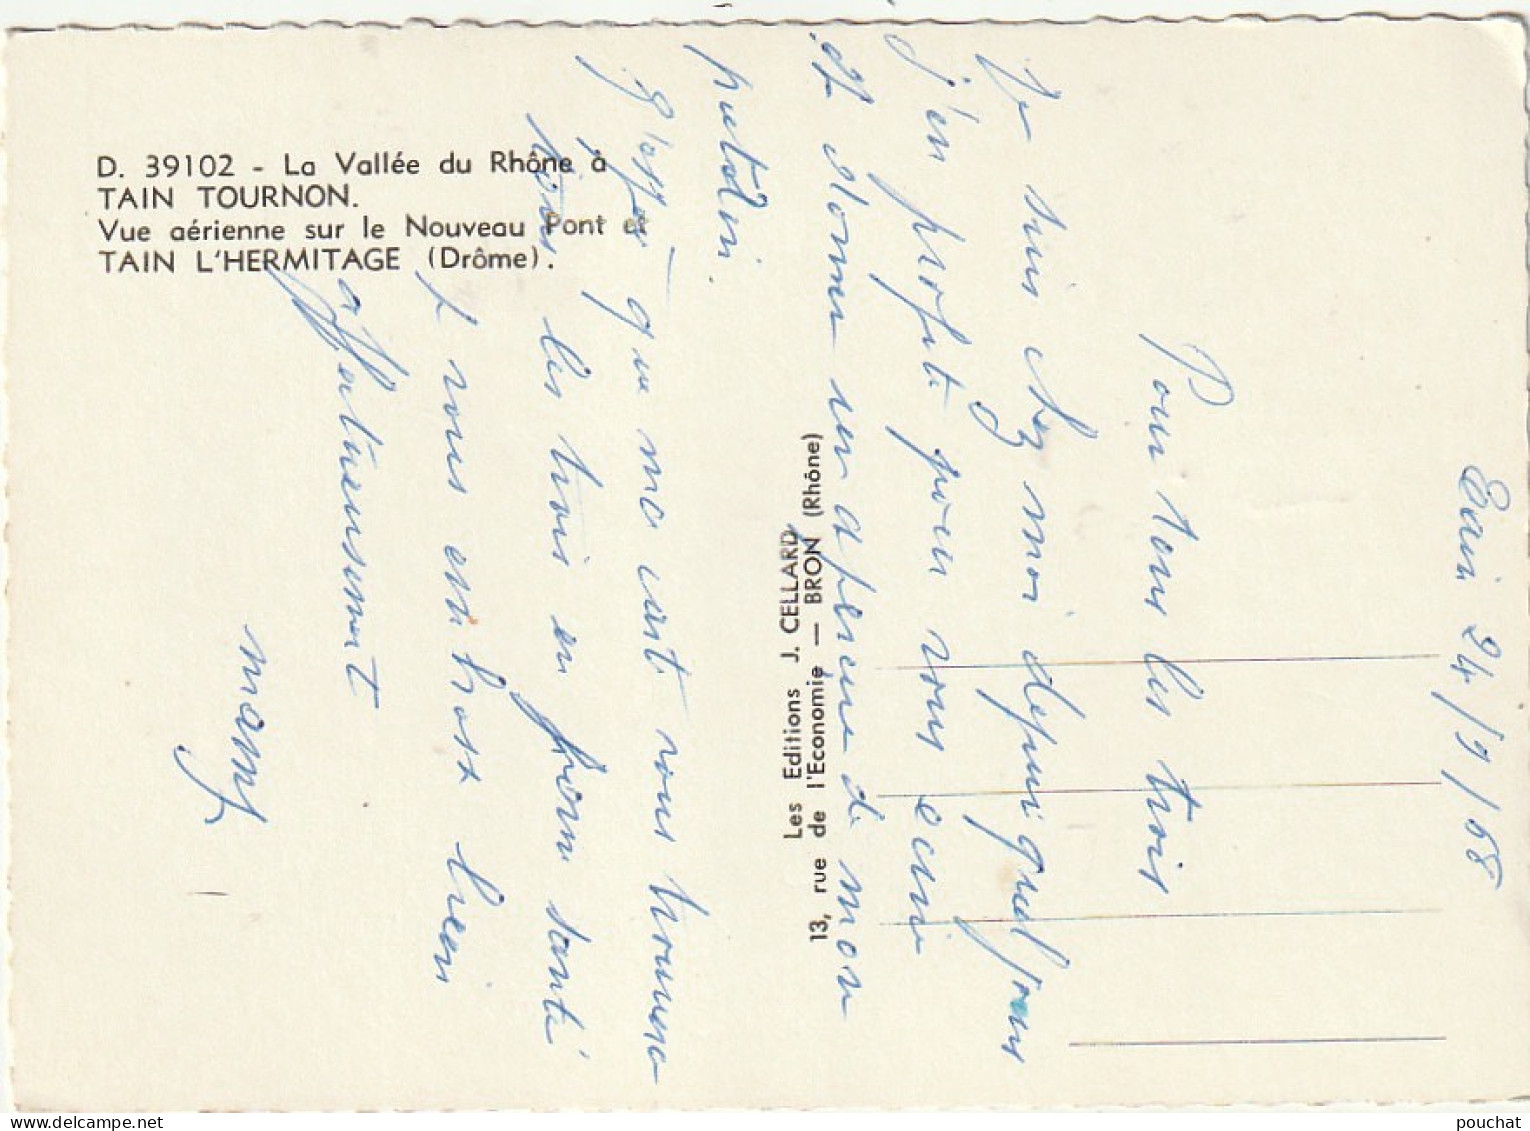 D. 39102 - La Vallée du Rhône à
TAIN TOURNON.
Vue aérienne sur le Nouveau Pont et
TAIN L'HERMITAGE (Drôme).
Les Editions J. CELLARD
13, rue de l'Economie — BRON (Rhône)
Tain 24/9/68
Pour tous les trois
Je suis chez moi depui quel jours
j'en profite pour vous ecrire
et donner un aperçue de mon
patelin.
J'espère que ma carte vous trouvera
tous les trois en forme santé
Je vous embrasse bien
affectueusement